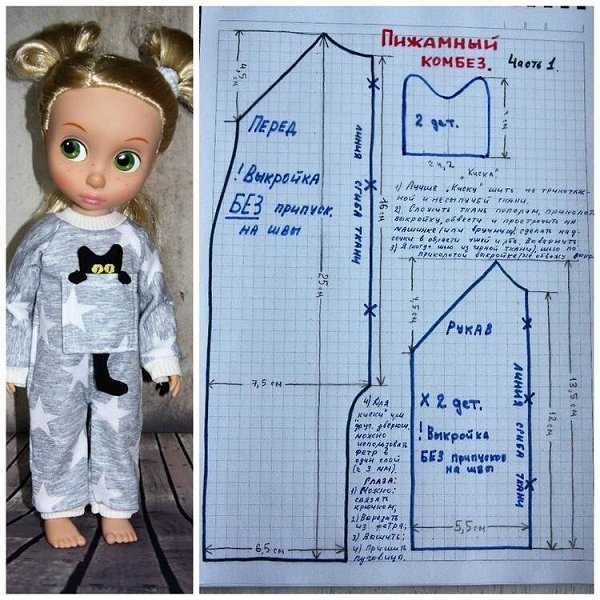 ПИЖАМНЫЙ
КОМБЕЗ.
Часть 1.
4,5 см
ПЕРЕД
! Выкройка
БЕЗ припуск.
на швы
ЛИНИЯ СГИБА ТКАНИ
16 см
25 см
7,5 см
6,5 см
2 дет.
"Киска"
1) Лучше "Киску" шить из трикотаж-
ной и несыпучей ткани.
2) Сложить ткань пополам, приколоть
выкройку, обвести и прострочить на
машинке (или вручную), сделать над-
сечки в области ушей и лба. Вывернуть
3) Я (когда шью из чёрной ткани), шью по
приколотой выкройке/не обвожу
4) Для
"киски" или
друг. зверюш.
можно
использовать
фетр в
один слой
(2-3 мм).
ГЛАЗА:
1) Можно:
связать
крючком;
2) Вырезать
из фетра;
3) Вышить;
4) Пришить
пуговицы.
4,5 см
РУКАВ
х 2 дет.
! Выкройка
БЕЗ припусков
на швы
ЛИНИЯ СГИБА ТКАНИ
12 см
13,5 см
5,5 см